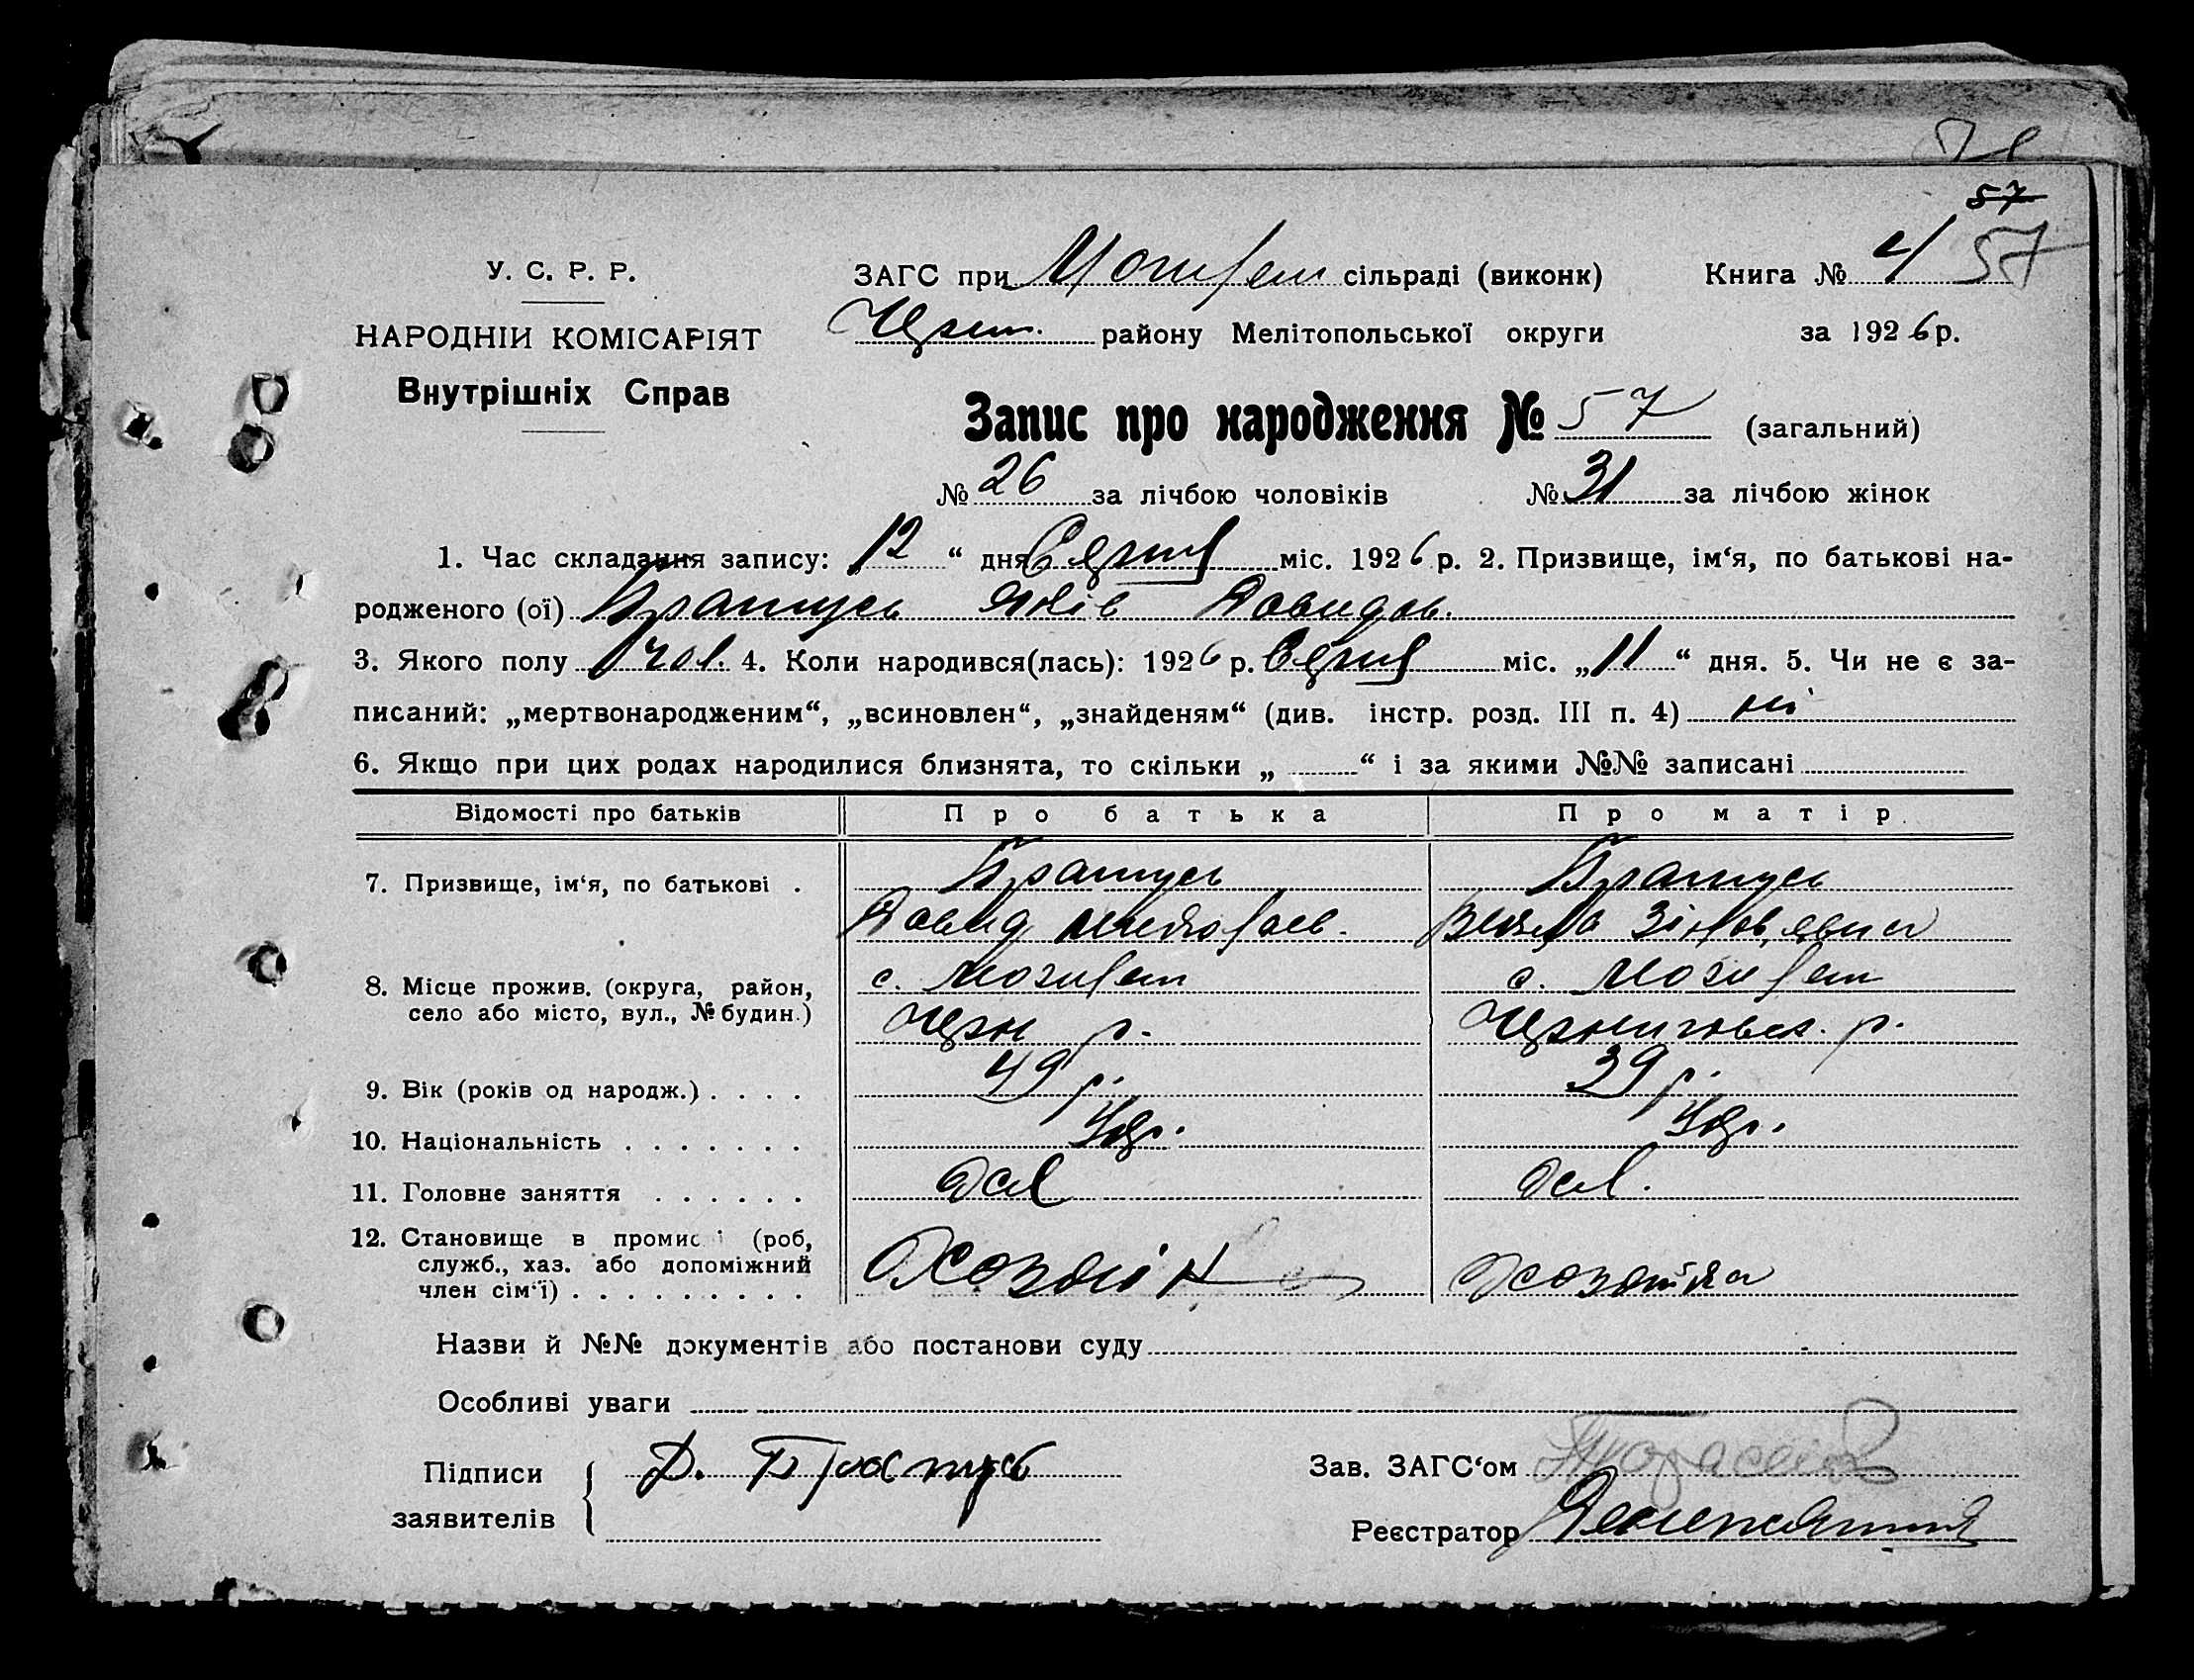 57
4 57
У. С. Р. Р.
ЗАГС при сільраді (виконк) Книга №
НАРОДНІЙ КОМІСАРІЯТ
району Мелітопольської округи за 1926 р.
Внутрішніх Справ
Запис про народження № 57 (загальний)
№ 26 за лічбою чоловіків № 31 за лічбою жінок
1. Час складання запису: „12“ дня Серпня міс. 1926 р. 2. Призвище, ім‘я, по батькові на-
родженого (ої) Братусь Яків Давидов.
3. Якого полу чол. 4. Коли народився(лась): 1926 р. Серпня міс. „11“ дня. 5. Чи не є за-
писаний: „мертвонародженим“, „всиновлен“, „знайденям“ (див. інстр. розд. III п. 4) ні
6. Якщо при цих родах народилися близнята, то скільки „ “ і за якими №№ записані
Відомості про батьків Про батька Про матір
7. Призвище, ім‘я, по батькові . Братусь Братусь
Давид Зінов,євна
8. Місце прожив. (округа, район, с. с.
село або місто, вул., № будин.) р. р.
9. Вік (років од народж.) . . . . 49 р. 39 р.
10. Національність . . . . . . . Укр. Укр.
11. Головне заняття . . . . . .
12. Становище в промис (роб,
служб., хаз. або допоміжний Хозяїн Хозяйка
член сім‘ї) . . . . . . . . .
Назви й №№ документів або постанови суду
Особливі уваги
Підписи Д. Братусь Зав. ЗАГС‘ом
заявителів Реєстратор